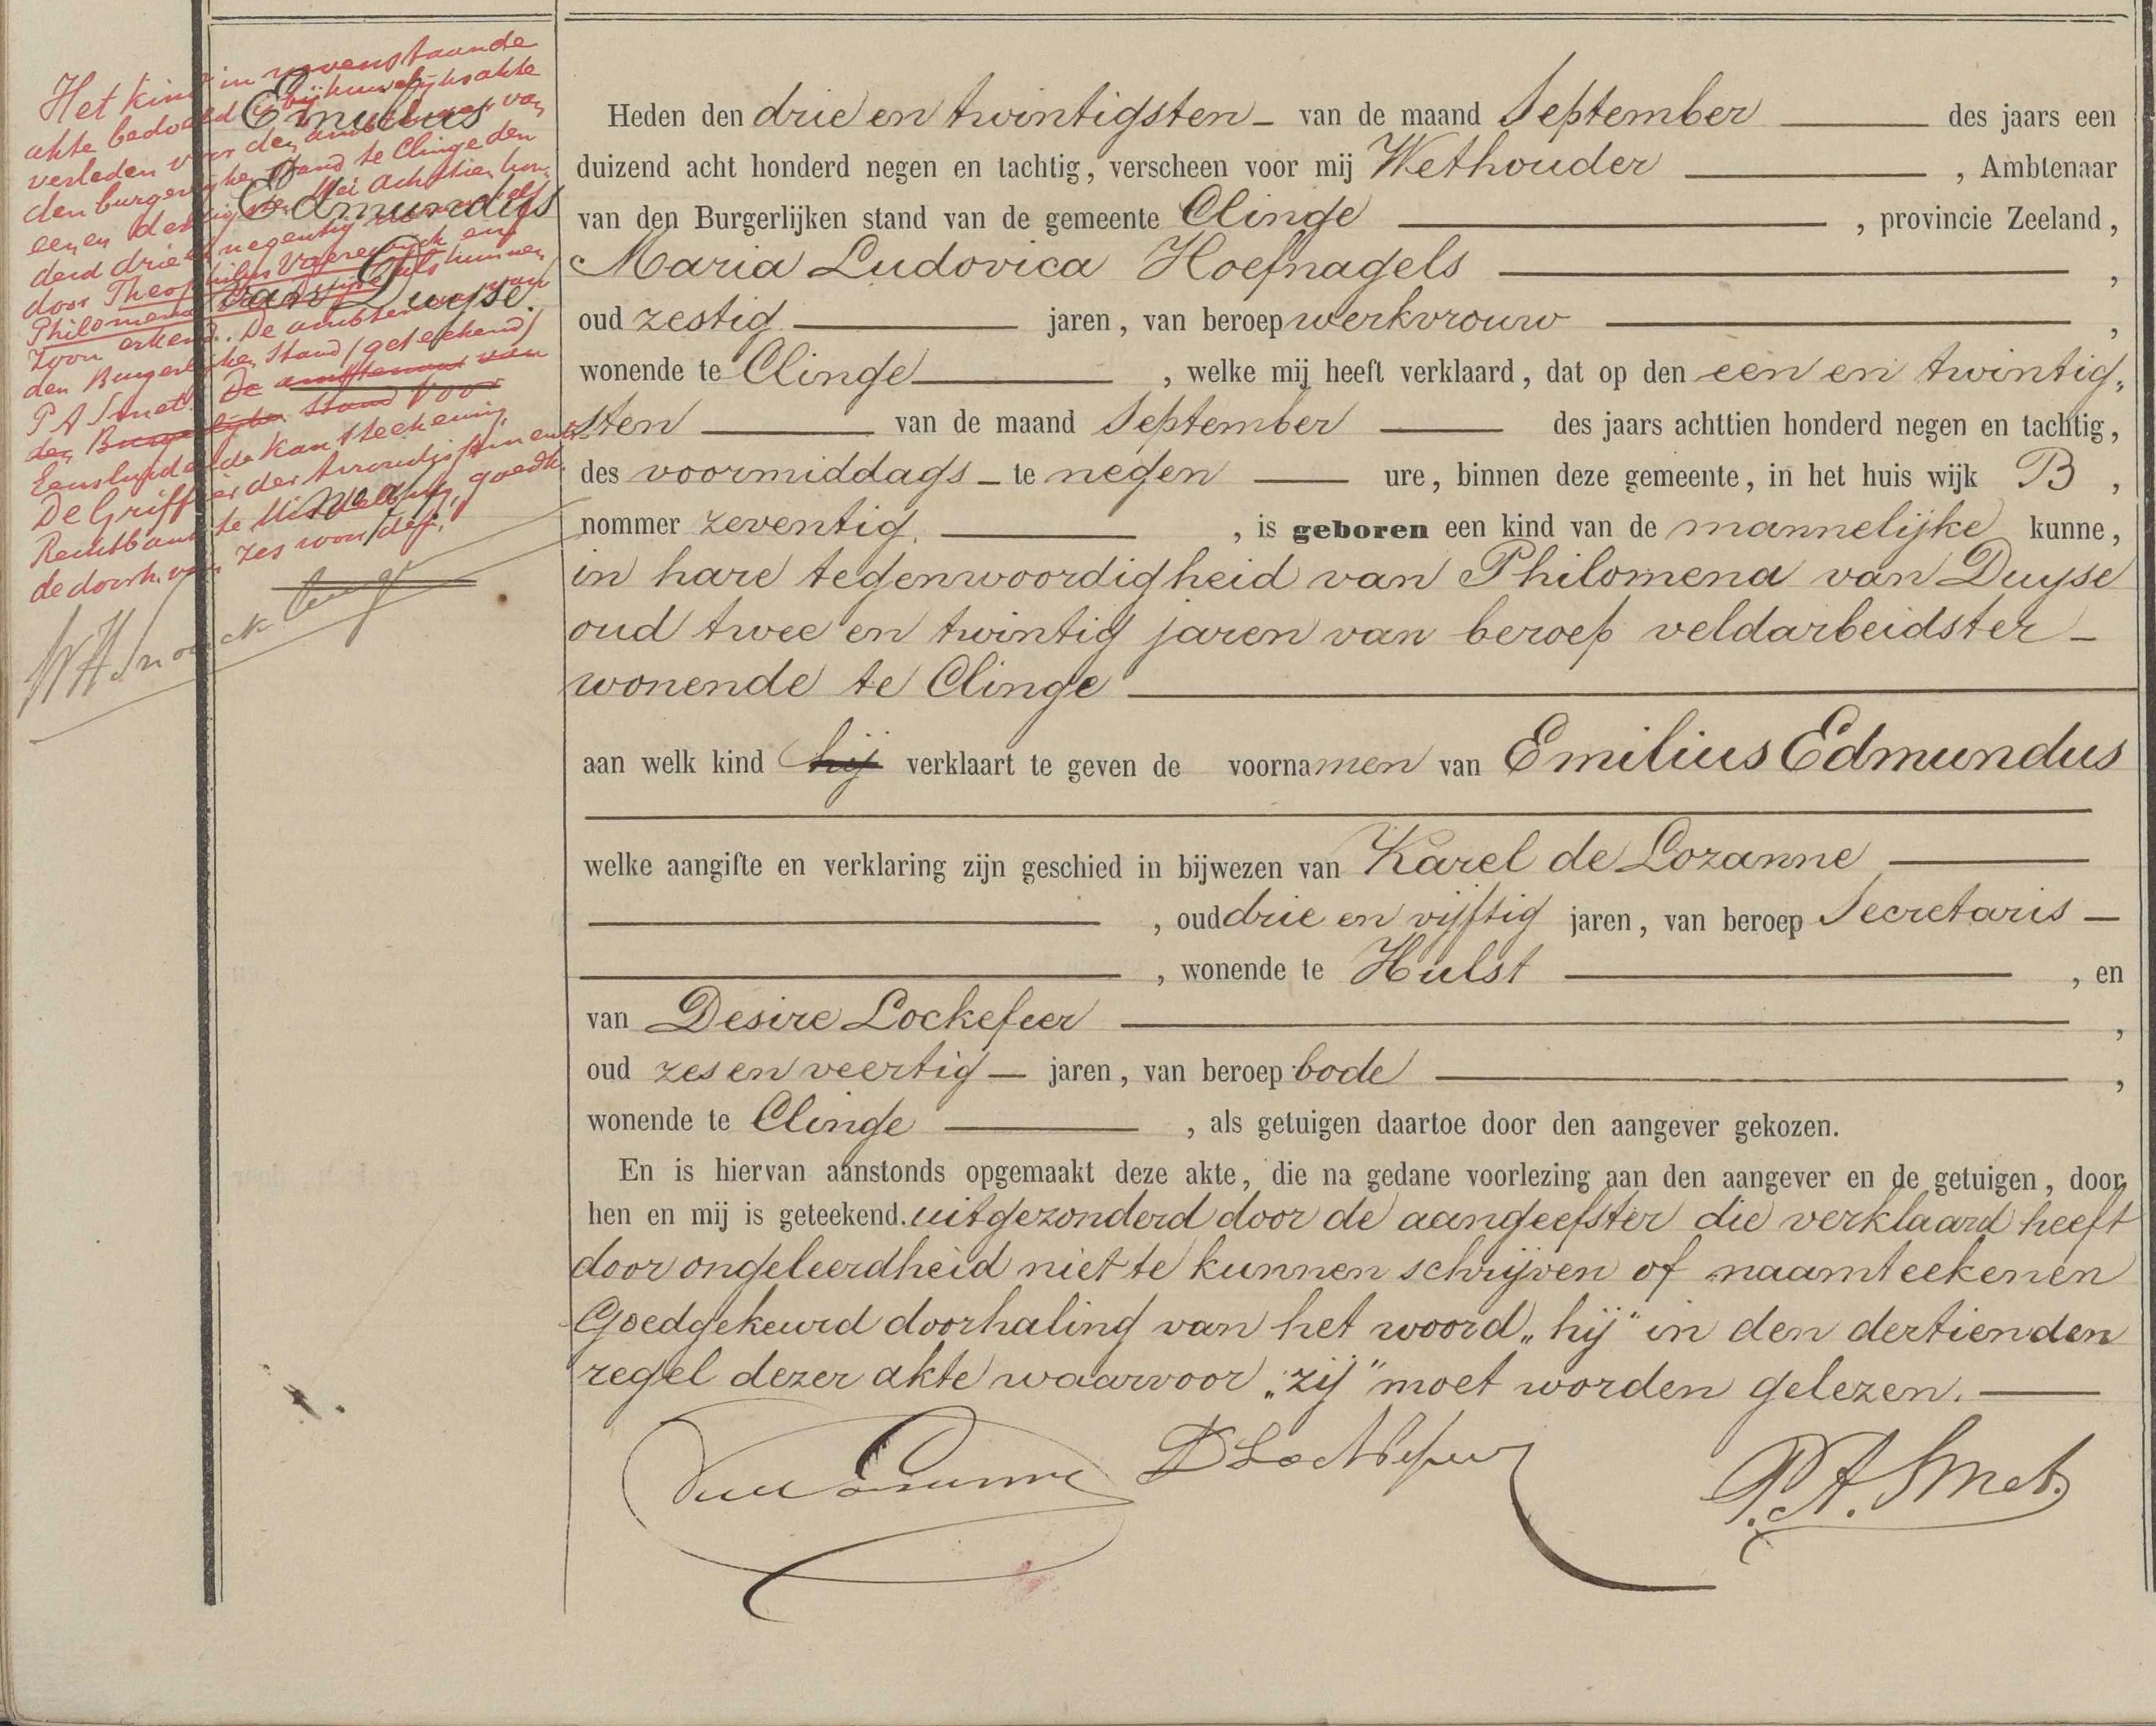 Het kind in nevenstaande
akte bedoeld is bij huwelijksakte
verleden voor den ambtenaar van
den burgerlijken stand te Clinge den
een en dertigsten Mei achttien hon„
derd drie en negentig
door Theophilus en
Philomena van Duyse als hunnen
zoon erkend. De ambtenaar van
den Burgerlijken Stand (geteekend)
P A Smet. De ambtenaar van
den Burgerlijken Stand Voor
Eensluidende Kantteekening
De Griffier der Arrondissements
Rechtbank te Middelburg, goedk.
de doorh. van zes woorden.
Emilius
Edmundus
van Duyse.
Heden den drie en twintigsten – van de maand September des jaars een
duizend acht honderd negen en tachtig, verscheen voor mij Wethouder , Ambtenaar
van den Burgerlijken stand van de gemeente Clinge , provincie Zeeland,
Maria Ludovica Hoefnagels ,
oud zestig jaren, van beroep werkvrouw ,
wonende te Clinge , welke mij heeft verklaard, dat op den een en twintig„
sten van de maand September des jaars achttien honderd negen en tachtig,
des voormiddags – te negen ure, binnen deze gemeente, in het huis wijk B ,
nommer zeventig. , is geboren een kind van de mannelijke kunne,
in hare tegenwoordigheid van Philomena van Duyse
oud twee en twintig jaren van beroep veldarbeidster –
wonende te Clinge
aan welk kind hij verklaart te geven de voornamen van Emilius Edmundus
welke aangifte en verklaring zijn geschied in bijwezen van Karel de Lozanne
, oud drie en vijftig jaren, van beroep Secretaris –
, wonende te Hulst , en
van Desire Lockefeer ,
oud zes en veertig – jaren, van beroep bode ,
wonende te Clinge , als getuigen daartoe door den aangever gekozen.
En is hiervan aanstonds opgemaakt deze akte, die na gedane voorlezing aan den aangever en de getuigen, door
hen en mij is geteekend. uitgezonderd door de aangeefster die verklaard heeft
door ongeleerdheid niet te kunnen schrijven of naamteekenen
Goedgekeurd doorhaling van het woord „hij" in den dertienden
regel dezer akte waarvoor „zij" moet worden gelezen.
D Lockefeer P. A. Smet.